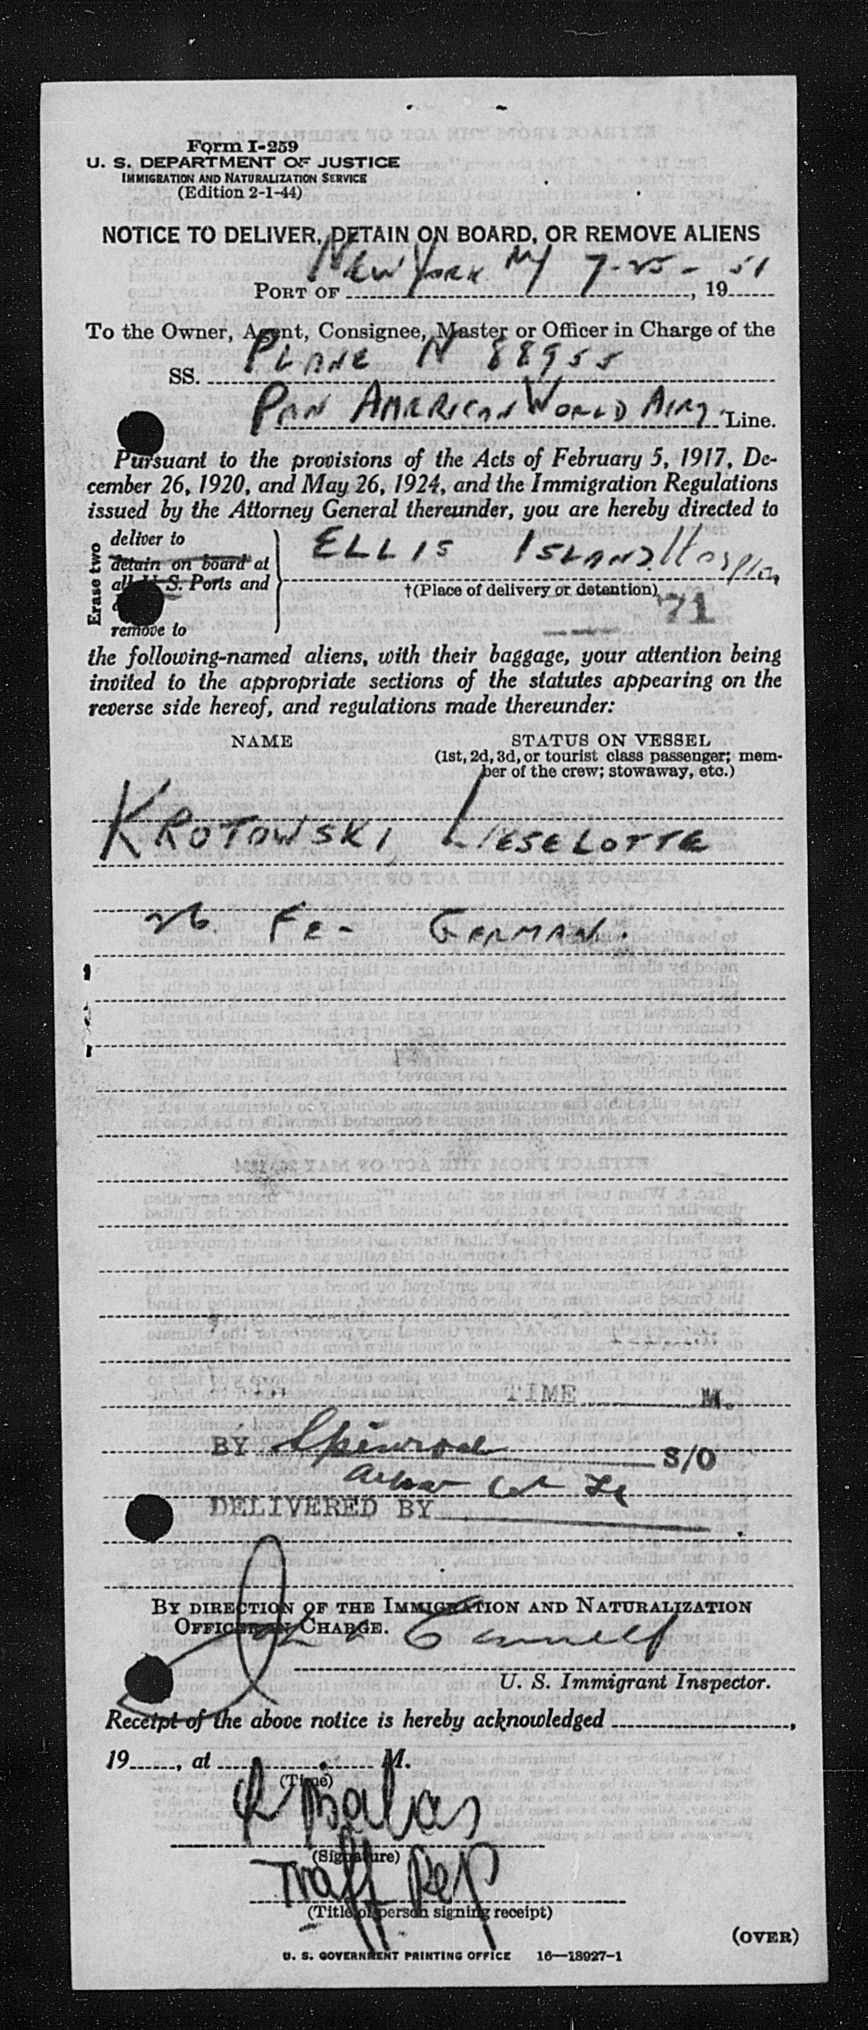 Form I-259
U. S. DEPARTMENT OF JUSTICE
IMMIGRATION AND NATURALIZATION SERVICE
(Edition 2-1-44)
NOTICE TO DELIVER, DETAIN ON BOARD, OR REMOVE ALIENS
PORT OF New York NY 7-25-, 1951
To the Owner, Agent, Consignee, Master or Officer in Charge of the
SS. PLANE N 88955
PAN AMERICAN WORLD AIRY Line.
Pursuant to the provisions of the Acts of February 5, 1917, De-
cember 26, 1920, and May 26, 1924, and the Immigration Regulations
issued by the Attorney General thereunder, you are hereby directed to
Erase two
deliver to
detain on board at
all U. S. Ports and
remove to
ELLIS ISLAND
†(Place of delivery or detention)
71
the following-named aliens, with their baggage, your attention being
invited to the appropriate sections of the statutes appearing on the
reverse side hereof, and regulations made thereunder:
NAME STATUS ON VESSEL
(1st, 2d, 3d, or tourist class passenger; mem-
ber of the crew; stowaway, etc.)
KROTOWSKI, LIESELOTTE
26. FE- GERMAN.
TIME M.
BY S/O
DELIVERED BY
BY DIRECTION OF THE IMMIGRATION AND NATURALIZATION
OFFICER IN CHARGE.
U. S. Immigrant Inspector.
Receipt of the above notice is hereby acknowledged ,
19 , at M.
(Time)
(Signature)
Traff Rep
(Title of person signing receipt)
(OVER)
U. S. GOVERNMENT PRINTING OFFICE 16—18927-1